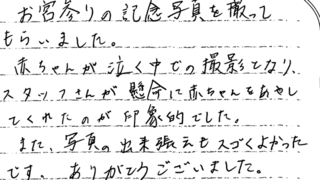 お宮参りの記念写真を撮って
もらいました。
赤ちゃんが泣く中での撮影となり、
スタッフさんが懸命に赤ちゃんをあやし
てくれたのが印象的でした。
また、写真の出来張えもスゴくよかった
です。ありがとうございました。